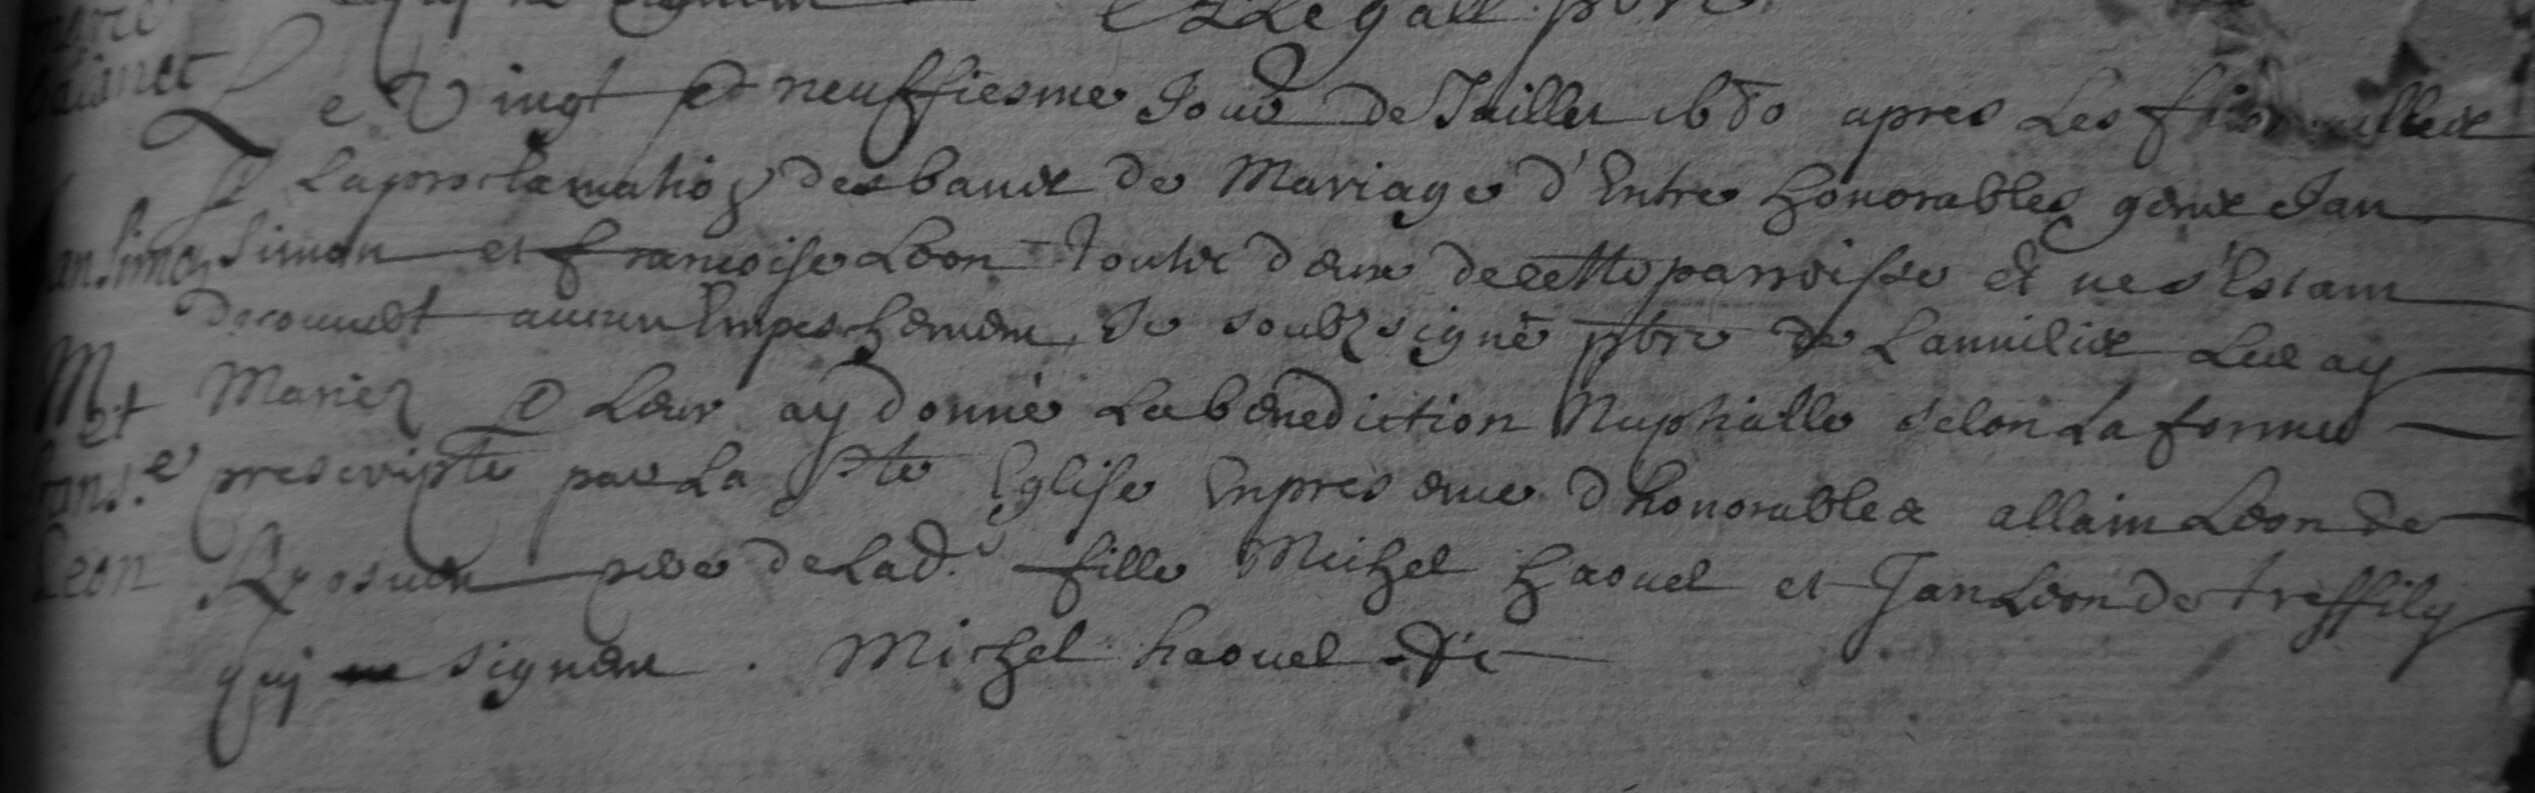 Le Vingt et neuffiesme Jour de Juillet 1680 apres Les
et La proclamation des bans de Mariage d'Entre honorables gens Jan
Jan Simon Simon et francoise Leon Touts deux de cette parroisse et ne s'Estant
decouvert aucun Empeschement Je soubzsigné pbre de Lannilis Les ay
M et Mariez et Leur ay donné La benediction Nuptialle selon La forme
franc.e prescripte par La Ste Eglise En presance d'honorables allain Leon de
Leon pere de Lad. fille Michel haouel et Jan Leon de treffily
quj signent . Michel haouel